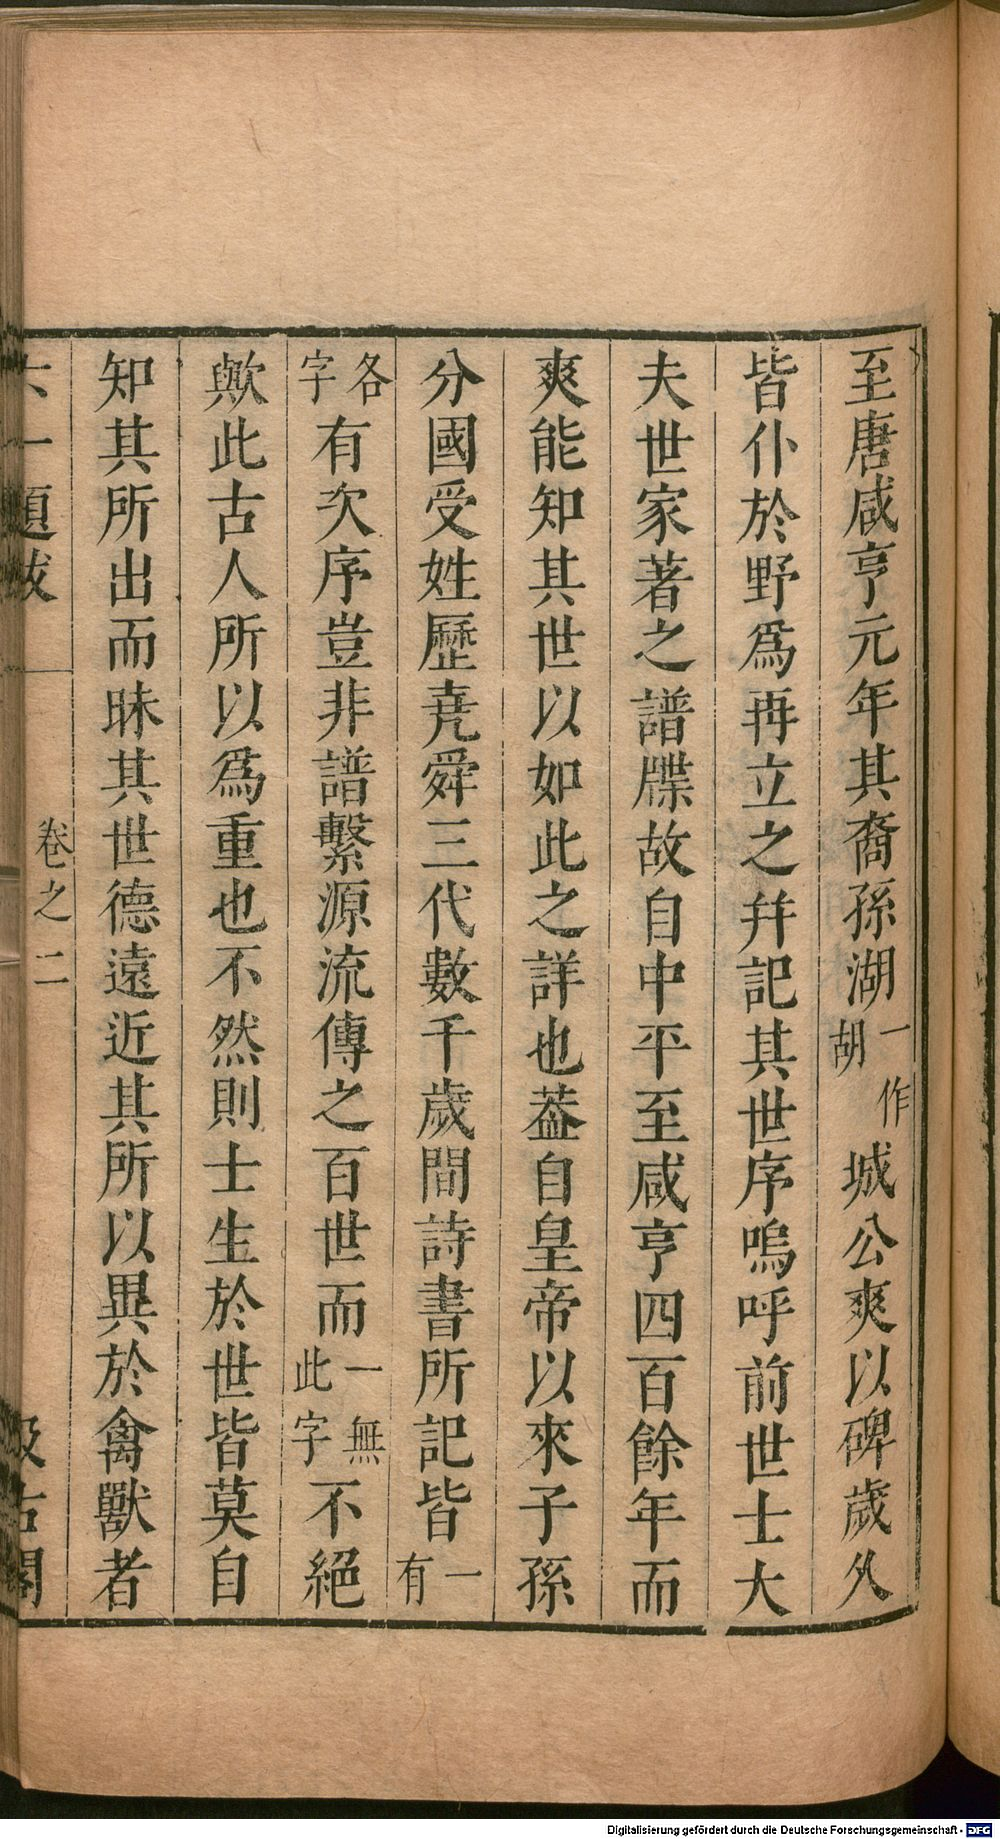 至唐咸亨元年其裔孫湖一作胡城公爽以碑歲久
皆仆於野爲再立之幷記其世序嗚呼前世士大
夫世家著之譜牒故自中平至咸亨四百餘年而
爽能知其世以如此之詳也葢自皇帝以來子孫
分國受姓歷堯舜三代數千歲間詩書所記皆一有
各字有次序豈非譜繫源流傳之百世而一無此字不絕
歟此古人所以爲重也不然則士生於世皆莫自
知其所出而昧其世德遠近其所以異於禽獸者
六一題跋 卷之二 汲古閣
Digitalisierung gefördert durch die Deutsche Forschungsgemeinschaft - DFG